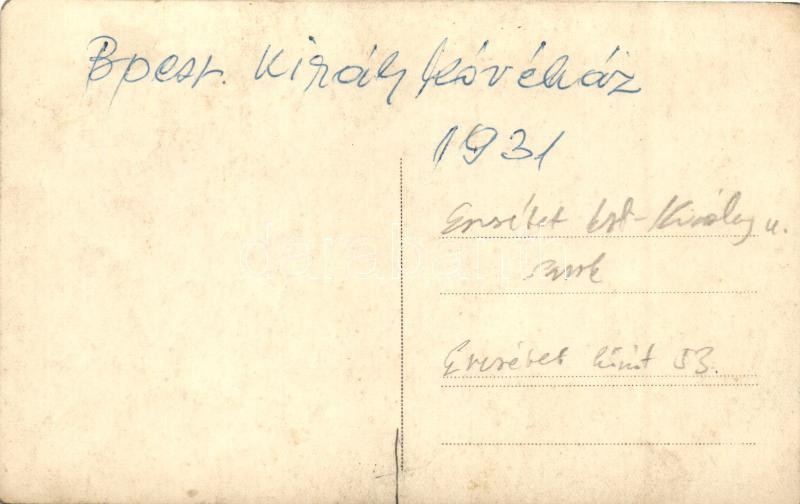 Bpest. Király Kávéház
1931
Erzsébet krt-Király u.
sarok
Erzsébet körút 53.
darabanth